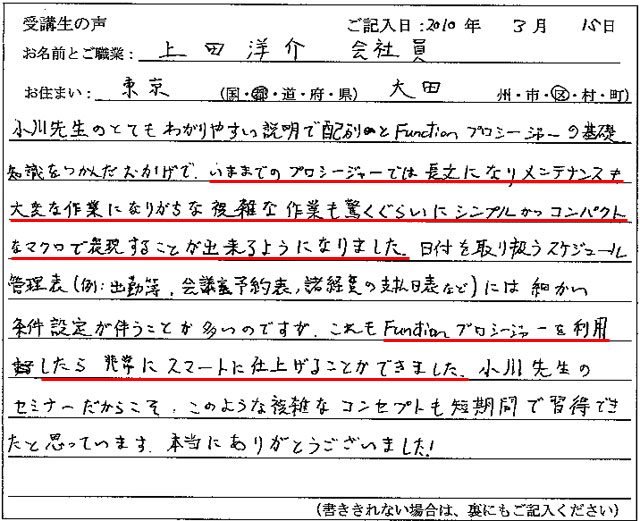 受講生の声 ご記入日：2010 年 3 月 15日
お名前とご職業： 上田洋介 会社員
お住まい： 東京 (国・都・道・府・県) 大田 州・市・区・村・町)
小川先生のとてもわかりやすい説明で配列のとFunctionプロシージャーの基礎
知識をつかんだおかげで、いままでのプロシージャーでは長文になりメンテナンスも
大変な作業になりがちな複雑な作業も驚くぐらいにシンプルかつコンパクト
なマクロで表現することが出来るようになりました。日付を取り扱うスケジュール
管理表(例：出勤簿、会議室予約表、諸経費の支払日表など)には細かい
条件設定が伴うことが多いのですが、これもFunctionプロシージャーを利用
したら非常にスマートに仕上げることができました。小川先生の
セミナーだからこそ、このような複雑なコンセプトも短期間で習得でき
たと思っています。本当にありがとうございました!
(書ききれない場合は、裏にもご記入ください)